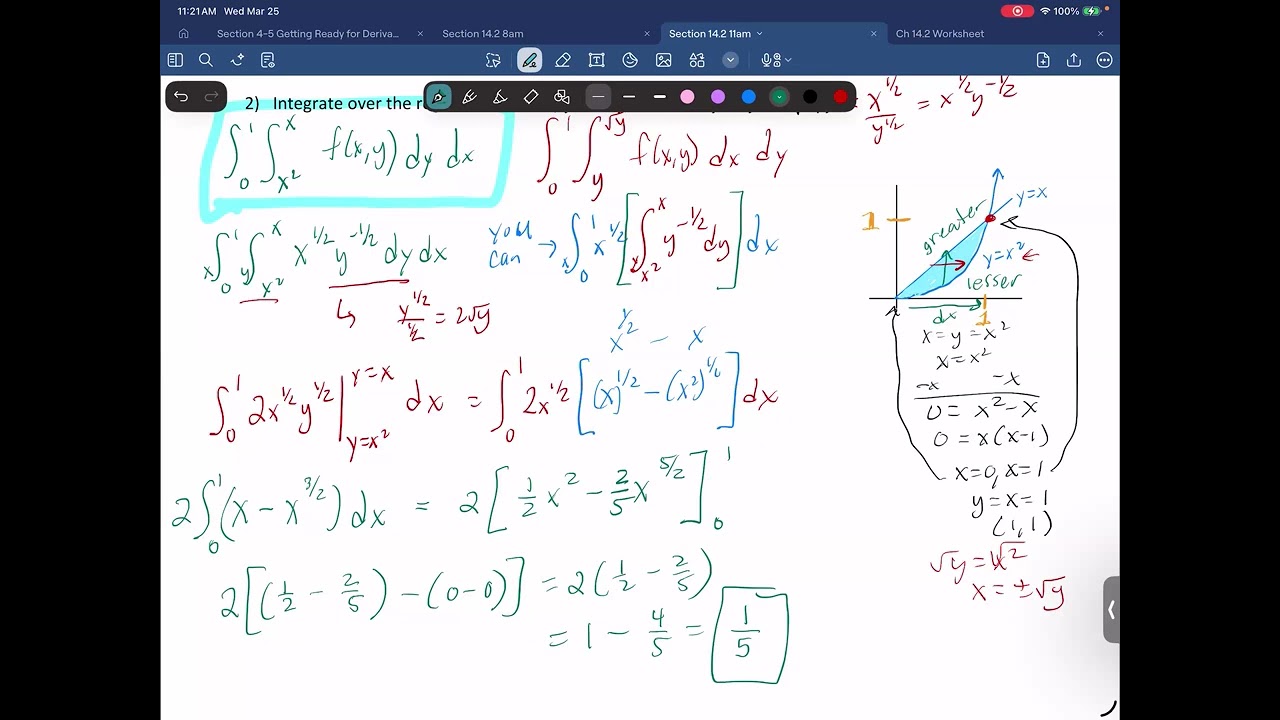 11:21AM Wed Mar 25
100%
Section 4-5 Getting Ready for Deriva... × Section 14.2 8am × Section 14.2 11am × Ch 14.2 Worksheet
2) Integrate over the r
x^{1/2}/y^{1/2} = x^{1/2}y^{-1/2}
∫_0^1 ∫_{x^2}^x f(x,y) dy dx
∫_0^1 ∫_y^{√y} f(x,y) dx dy
x ∫_0^1 y ∫_{x^2}^x x^{1/2} y^{-1/2} dy dx
you can → x ∫_0^1 x^{1/2} [∫_{x^2}^x y^{-1/2} dy] dx
↳ y^{1/2}/(1/2) = 2√y
x^{1/2} - x
∫_0^1 2x^{1/2} y^{1/2} |_{y=x^2}^{y=x} dx = ∫_0^1 2x^{1/2} [(x)^{1/2} - (x^2)^{1/2}] dx
2∫_0^1 (x - x^{3/2}) dx = 2[1/2 x^2 - 2/5 x^{5/2}]_0^1
2[(1/2 - 2/5) - (0-0)] = 2(1/2 - 2/5)
= 1 - 4/5 = 1/5
y=x
1
greater
y=x^2 ←
lesser
dx
1
x = y = x^2
x = x^2
-x -x
0 = x^2 - x
0 = x(x-1)
x=0, x=1
y = x = 1
(1,1)
√y = √x^2
x = ±√y